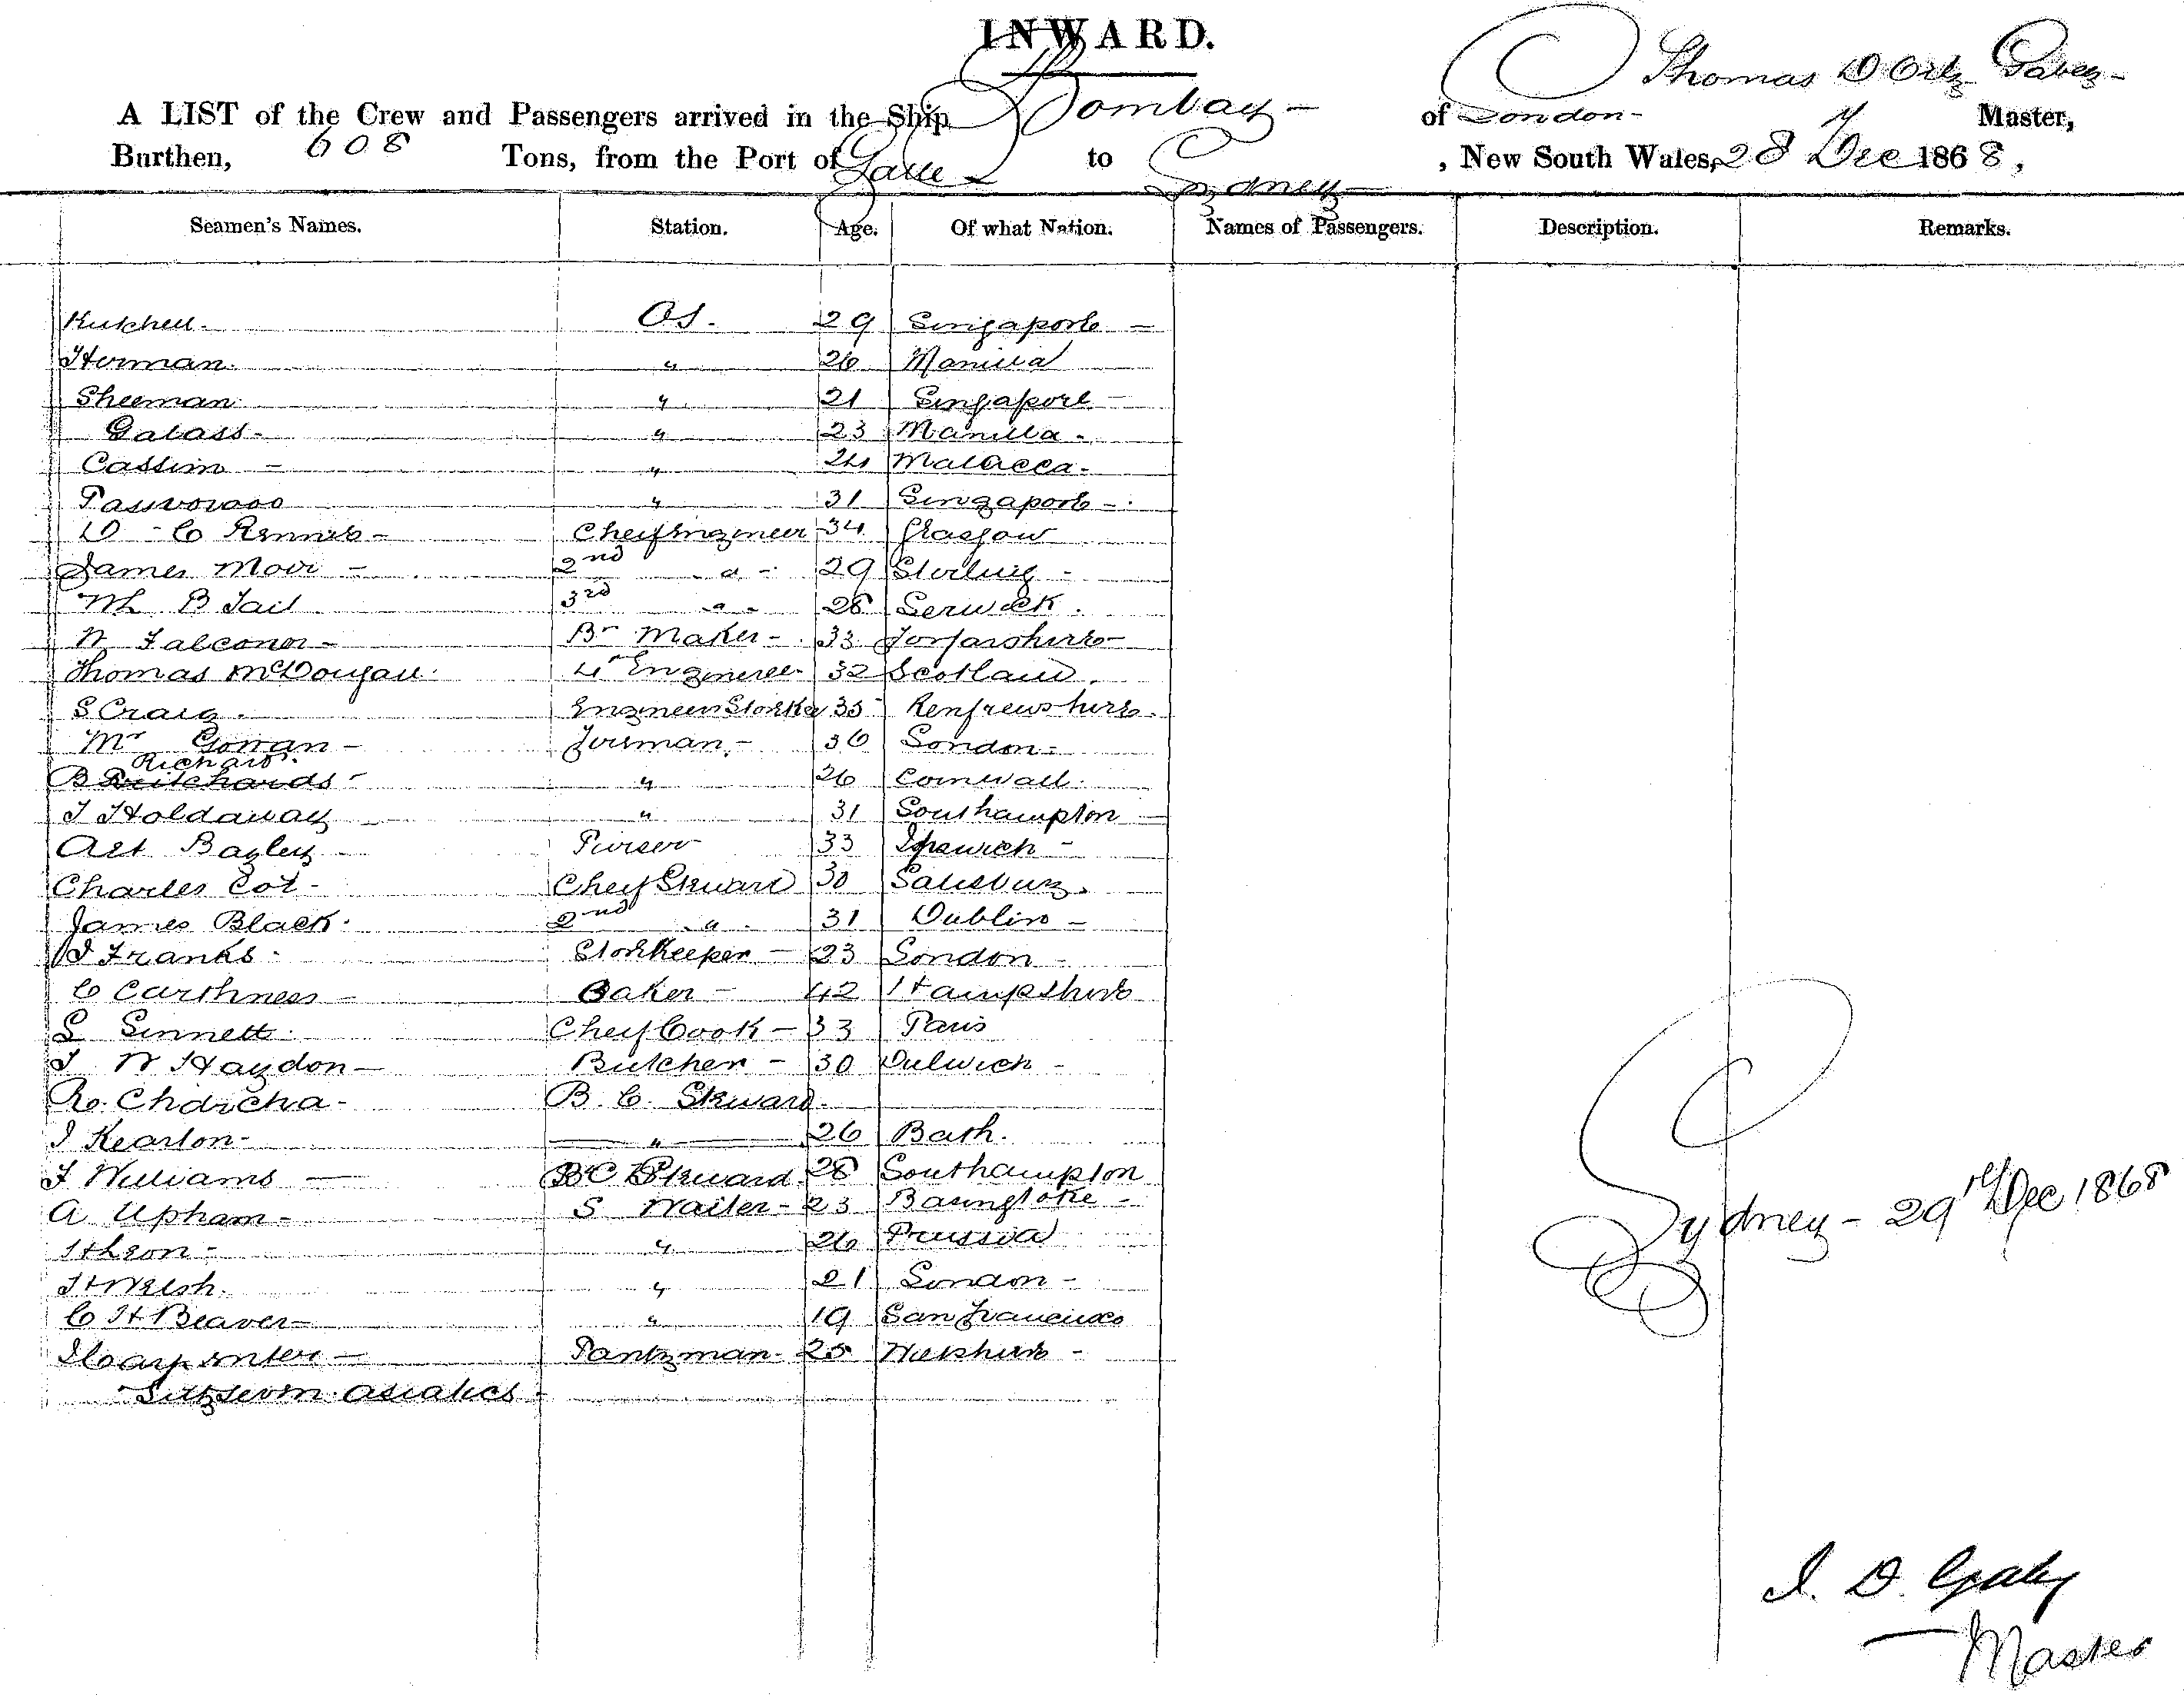 INWARD.
A LIST of the Crew and Passengers arrived in the Ship Bombay - of London - Thomas D Master,
Burthen, 608 Tons, from the Port of Galle to Sydney, New South Wales, 28 Dec 1868,
Seamen's Names. Station. Age. Of what Nation. Names of Passengers. Description. Remarks.
OS. 29 Singapore -
Herman. " 26 Manilla
Sheeman " 21 Singapore -
Galass - " 23 Manilla -
Cassim - " 24 Malacca -
" 31 Singapore -
D - C Rennie - Cheif Engineer 34 Glasgow
James Moir - 2nd " - 29 Sterling -
B Tait 3rd " - 28
W Falconer - Br Maker - 33 Forfarshire -
Thomas McDougall 4 Engineer 32 Scotland.
S Craig. Engineers Storekr 35 Renfrewshire.
Mr Gowan - Fireman - 36 London -
Richard
B Pritchards - " 26 Cornwall.
T Holdaway " 31 Southampton -
Art Bagley Purser 33 Ipswich -
Charles Cot - Cheif Steward 30 Salisbury.
James Black. 2nd " 31 Dublin -
Franks - Storekeeper - 23 London -
C Carthness - Baker - 42 Hampshire
S Sinnett. Cheif Cook - 33 Paris
J W Haydon - Butcher - 30 Dulwich -
Ro. Chdricha - B. C. Steward.
J Kearlon - " 26 Bath.
J Williams - B C Steward 28 Southampton
A Upham - S Waiter - 23 Basingstoke -
H Leon - " 26 Prussia
J H Welsh. " 21 London -
C H Beaver - " 19 San Francisco
J Carpenter - Pantryman - 25 Wiltshire -
Asiatics -
Sydney - 29th Dec 1868
Master